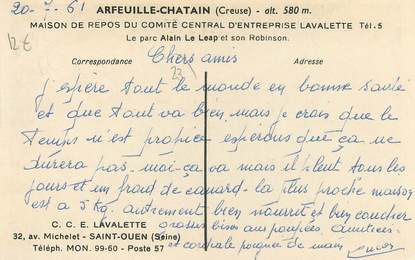 20-7-61
ARFEUILLE-CHATAIN (Creuse) - alt. 580 m.
MAISON DE REPOS DU COMITÉ CENTRAL D'ENTREPRISE LAVALETTE Tél. 5
Le parc Alain Le Leap et son Robinson.
12€
Correspondance
Adresse
Chers amis
23
j'espère tout le monde en bonne santé
et que tout va bien, mais je crois que le
temps n'est propice esperons que ça ne
durera pas. moi ça va mais il pleut tous les
jours et un froid de canard. la plus proche maison
est a 5 Kg. autrement bien nourrit et bien coucher
grosses bises aux poupées. Amitiées
et cordiale poignée de main
C. C. E. LAVALETTE
32, av. Michelet - SAINT-OUEN (Seine)
Téléph. MON. 99-60 - Poste 57